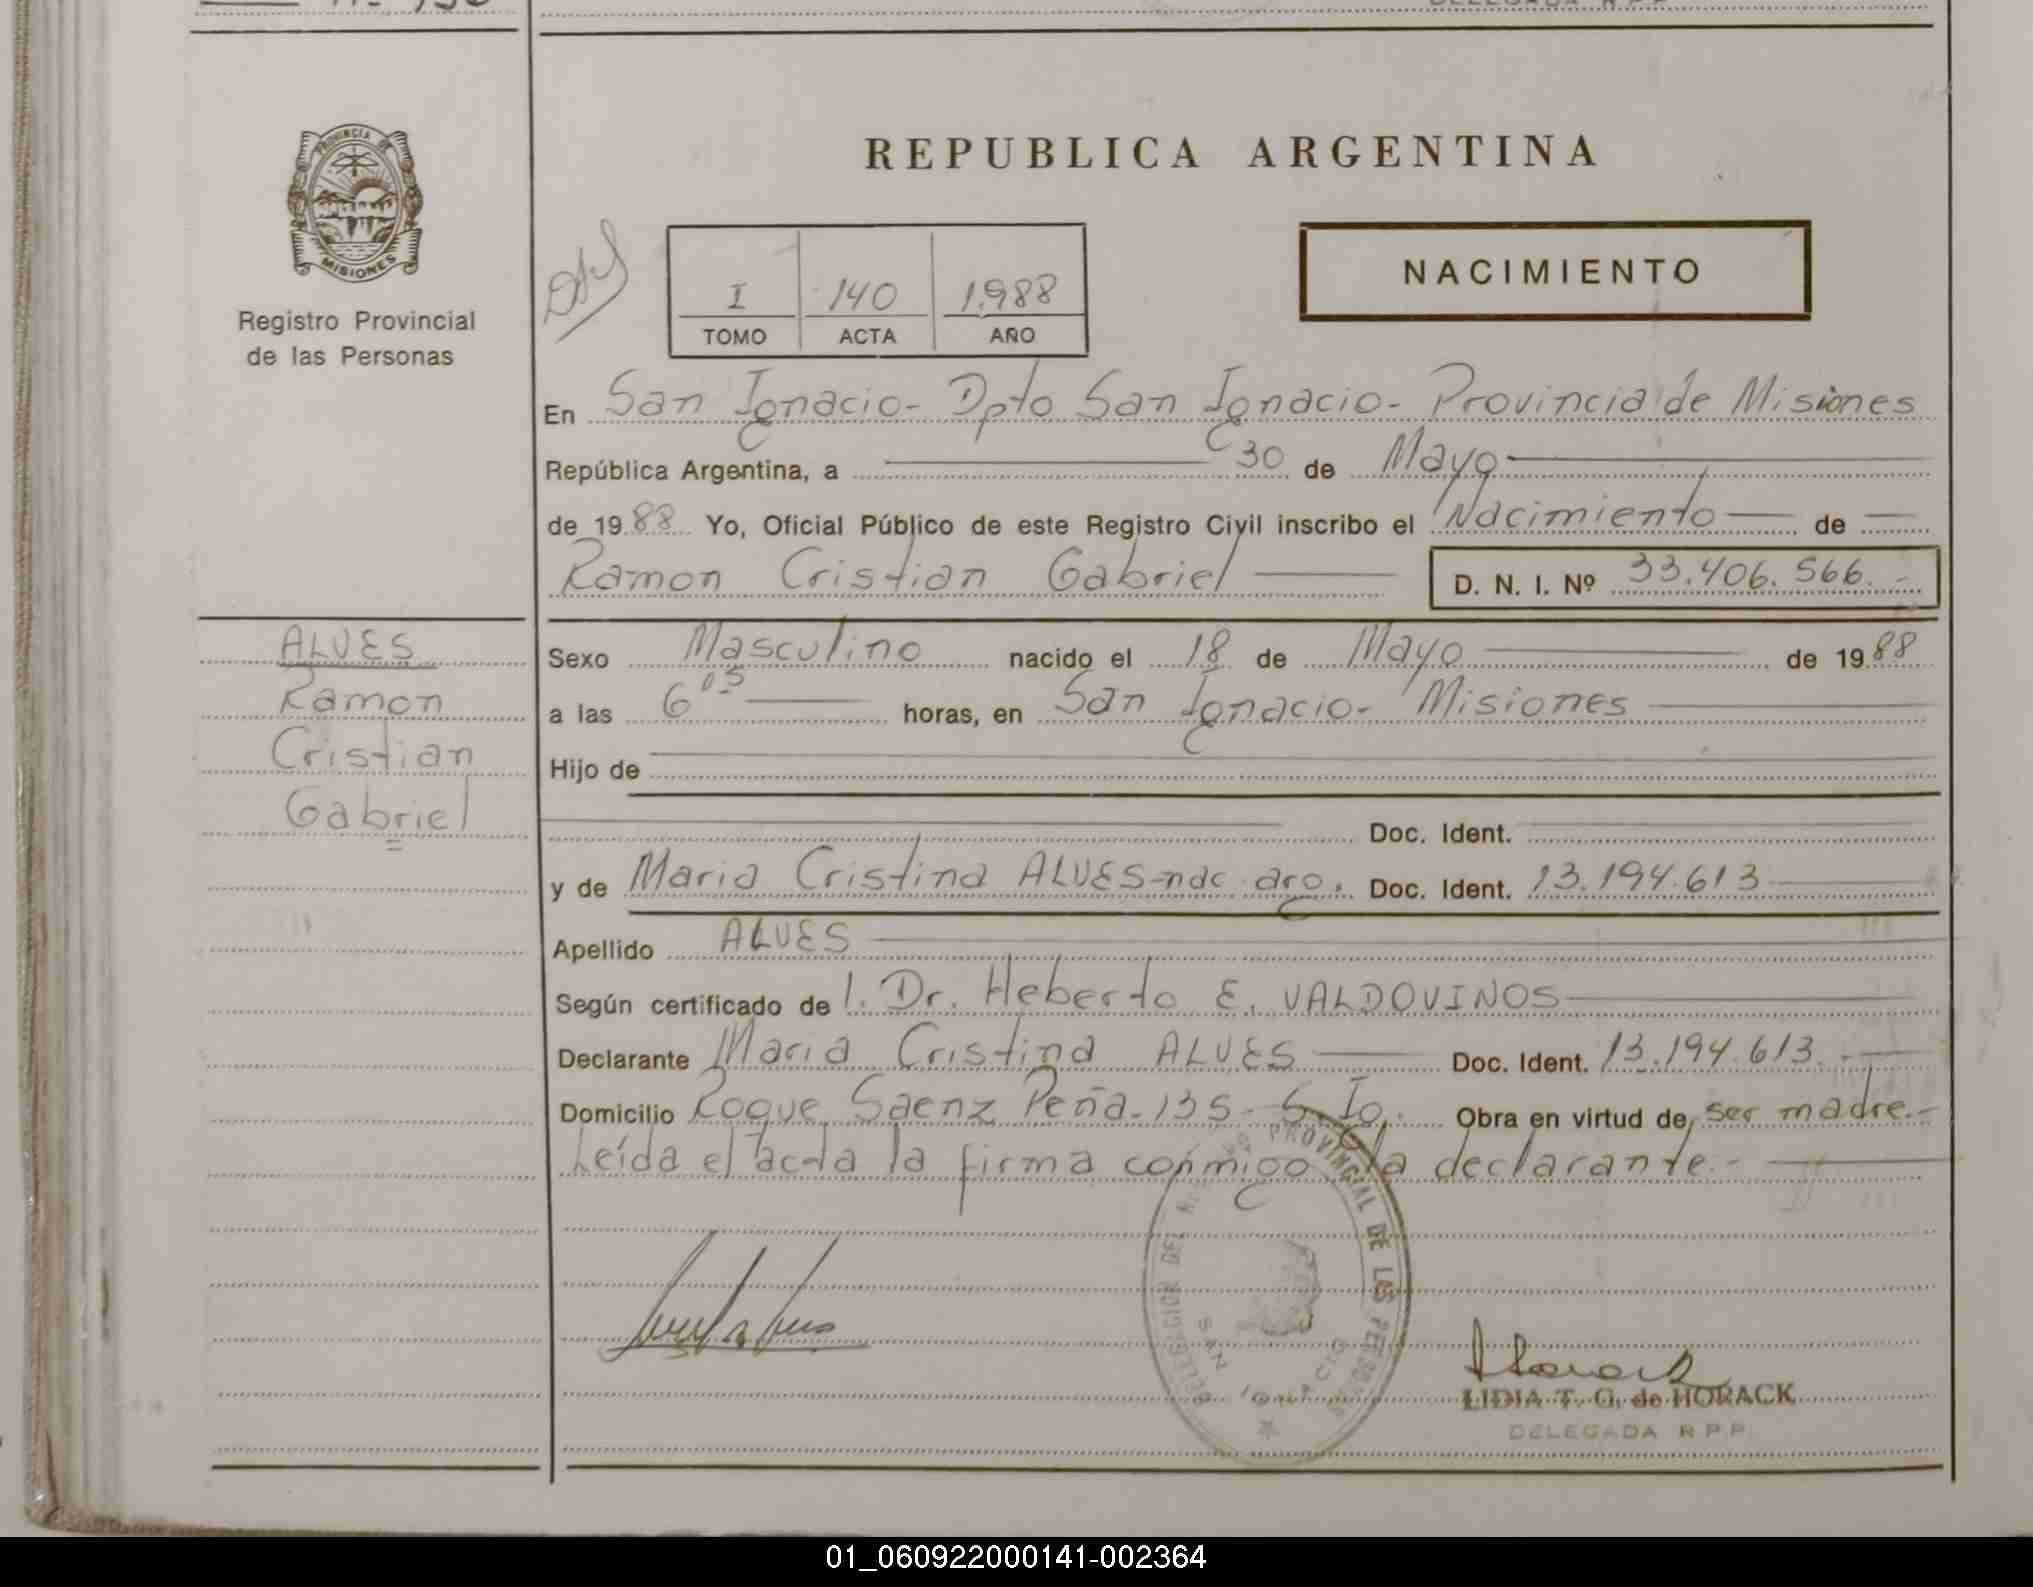 DELEGADA R P P
PROVINCIA DE
MISIONES
Registro Provincial
de las Personas
REPUBLICA ARGENTINA
I 140 1.988
TOMO ACTA AÑO
NACIMIENTO
En San Ignacio- Dpto San Ignacio- Provincia de Misiones
República Argentina, a 30 de Mayo
de 1988 Yo, Oficial Público de este Registro Civil inscribo el Nacimiento de
Ramon Cristian Gabriel D. N. I. Nº 33.406.566.-
ALVES
Ramon
Cristian
Gabriel
Sexo Masculino nacido el 18 de Mayo de 1988
a las 6 05 horas, en San Ignacio- Misiones
Hijo de
Doc. Ident.
y de Maria Cristina ALVES-nac arg. Doc. Ident. 13.194.613
Apellido ALVES
Según certificado de 1. Dr. Heberto E. VALDOVINOS
Declarante Maria Cristina ALVES Doc. Ident. 13.194.613.-
Domicilio Roque Saenz Peña-135- S. Ig. Obra en virtud de ser madre.-
Leída el acta la firma conmigo la declarante.-
DELEGACION DEL REGISTRO PROVINCIAL DE LAS PERSONAS
SAN IGNACIO
LIDIA T. G. de HORACK
DELEGADA R P P
01_060922000141-002364